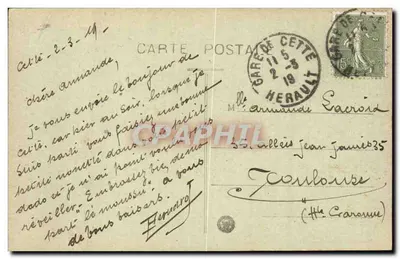 Cette - 2-3-19-
CARTE POSTALE
GARE DE CETTE
11 5
2 - 3
19
HERAULT
GARE DE
Chère Armande,
Je vous envoie le bonjour de
Cette. car hier au soir, lorsque je
suis parti vous faisiez une bonne
petite nonette dans votre petit
dodo et je n'ai point voulu vous
réveiller. Embrassez bien de ma
part "le mousse" à vous
de bons baisers.
Mlle Armande Lacroix
35, allées Jean Jaurès 35
Toulouse
(Hte Garonne)